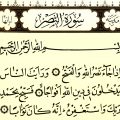 سُورَةُ النَّصْرِ
بِسْمِ اللَّهِ الرَّحْمَٰنِ الرَّحِيمِ
إِذَا جَاءَ نَصْرُ اللَّهِ وَالْفَتْحُ وَرَأَيْتَ النَّاسَ
يَدْخُلُونَ فِي دِينِ اللَّهِ أَفْوَاجًا فَسَبِّحْ بِحَمْدِ
رَبِّكَ وَاسْتَغْفِرْهُ إِنَّهُ كَانَ تَوَّابًا